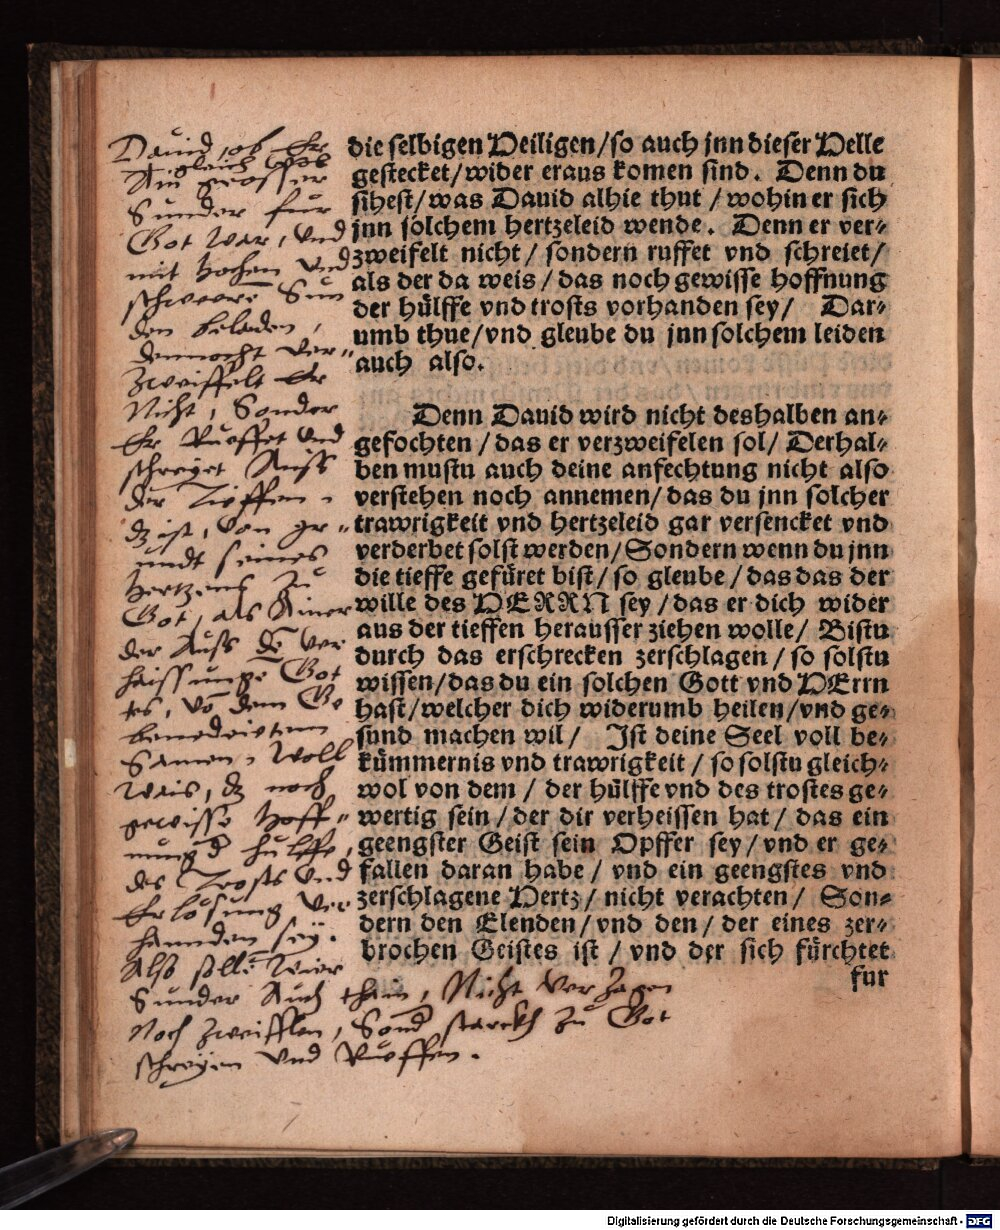 die selbigen Heiligen/so auch jnn dieser Helle
gestecket/wider eraus komen sind. Denn du
sihest/was Dauid alhie thut/wohin er sich
jnn solchem hertzeleid wende. Denn er ver-
zweifelt nicht/sondern ruffet vnd schreiet/
als der da weis/das noch gewisse hoffnung
der hülffe vnd trosts vorhanden sey/ Dar-
umb thue/vnd gleube du jnn solchem leiden
auch also.
Denn Dauid wird nicht deshalben an-
gefochten/das er verzweifelen sol/Derhal-
ben mustu auch deine anfechtung nicht also
verstehen noch annemen/das du jnn solcher
trawrigkeit vnd hertzeleid gar versencket vnd
verderbet solst werden/Sondern wenn du jnn
die tieffe gefüret bist/so gleube/das das der
wille des HERRN sey/das er dich wider
aus der tieffen herausser ziehen wolle/ Bistu
durch das erschrecken zerschlagen/so solstu
wissen/das du ein solchen Gott vnd HErrn
hast/welcher dich widerumb heilen/vnd ge-
sund machen wil/ Ist deine Seel voll be-
kümmernis vnd trawrigkeit/so solstu gleich-
wol von dem/der hülffe vnd des trostes ge-
wertig sein/der dir verheissen hat/das ein
geengster Geist sein Opffer sey/vnd er ge-
fallen daran habe/vnd ein geengstes vnd
zerschlagene Hertz/nicht verachten/Son-
dern den Elenden/vnd den/der eines zer-
brochen Geistes ist/vnd der sich fürchtet
fur
Dauid, ob Er
gleich
Ain grosser
Sunder fur
Got war, Und
mit hochen Und
schwären Sun
den beladen,
dennocht ver-
zweiffelt Er
Nicht, Sonder
Er Rueffet Und
schreyet Auss
der Tieffen.
dz ist, von gr-
undt seines
hertzens zu
Got, als Ainer
der Auss den ver
haissunge Got
tes, vo dem Ge
benedeieten
Samen, Woll
Wais, dz noch
gewisse hoff-
nung d hulffe,
des Trosts Und
Erlösung ver
hannden sey.
Also solle Wier
Sunder Auch thain, Nicht verzagen
Noch zweifflen, Sond starckh zu Got
schreyen Und Rueffen.
Digitalisierung gefördert durch die Deutsche Forschungsgemeinschaft - DFG